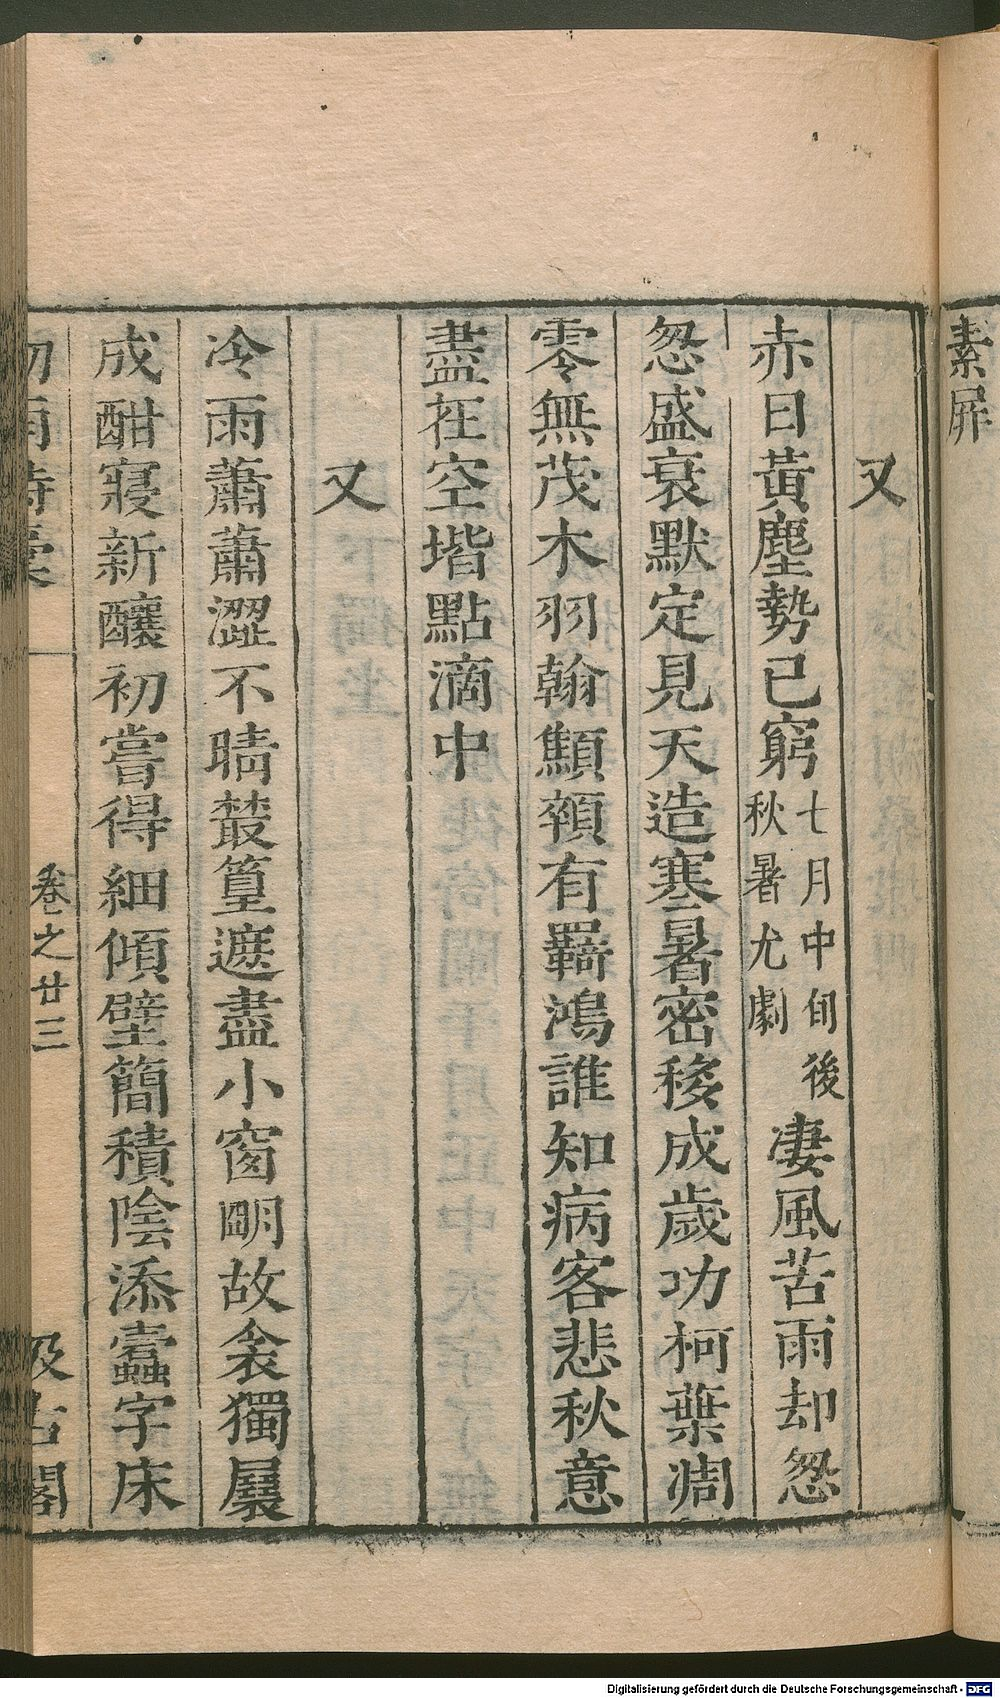 素屝
又
赤日黃塵勢已窮七月中旬後秋暑尤劇凄風苦雨却怱
怱盛衰默定見天造寒暑密移成歲功柯葉凋
零無茂木羽翰顦顇有羇鴻誰知病客悲秋意
盡在空堦點滴中
又
冷雨蕭蕭澀不晴叢篁遮盡小窗明故衾獨展
成酣寢新釀初嘗得細傾壁簡積陰添蠹字床
卷之廿三
汲古閣
Digitalisierung gefördert durch die Deutsche Forschungsgemeinschaft - DFG